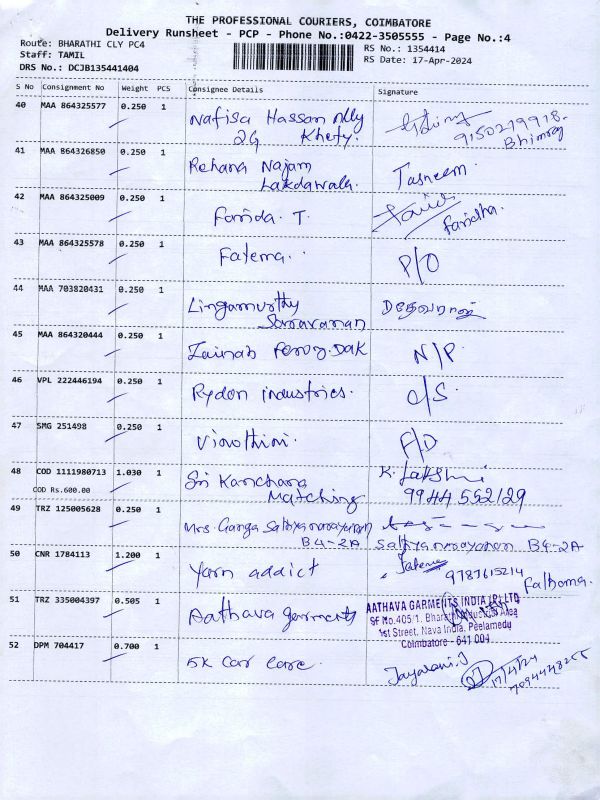 THE PROFESSIONAL COURIERS, COIMBATORE
Delivery Runsheet - PCP - Phone No.:0422-3505555 - Page No.:4
Route: BHARATHI CLY PC4
Staff: TAMIL
DRS No.: DCJB135441404
RS No.: 1354414
RS Date: 17-Apr-2024
S No Consignment No Weight PCS Consignee Details Signature
40 MAA 864325577 0.250 1 Nafisa Hassan Ally
2G Khety. 9150219918-
Bhimraj
41 MAA 864326850 0.250 1 Rehana Najam Tasneem.
Lakdawala.
42 MAA 864325009 0.250 1 Farida. T. Faridha.
43 MAA 864325578 0.250 1 Fatema. P/O
44 MAA 703820431 0.250 1 Lingamurthy
Saravanan தேவராஜ்
45 MAA 864320444 0.250 1 Zainab Feroz.Dak N/P.
46 VPL 222446194 0.250 1 Rydon industries. C/S.
47 SMG 251498 0.250 1 Vinothini. F/D
48 COD 1111980713 1.030 1 Sri Kanchana K. Lakshmi
COD Rs.600.00 Matching 9944552129
49 TRZ 125005628 0.250 1 Mrs. Ganga Sathyanarayanan
B4-2A Sathyanarayanan B4-2A
50 CNR 1784113 1.200 1 Yarn addict 9787615214
Fathoma.
51 TRZ 335004397 0.505 1 Aathava garments
AATHAVA GARMENTS INDIA (P) LTD
SF No.405/1, Bharathi Industrial Area
1st Street, Nava India, Peelamedu
Coimbatore - 641 004
52 DPM 704417 0.700 1 5k Car Care. Jayarani.J
17/4/24